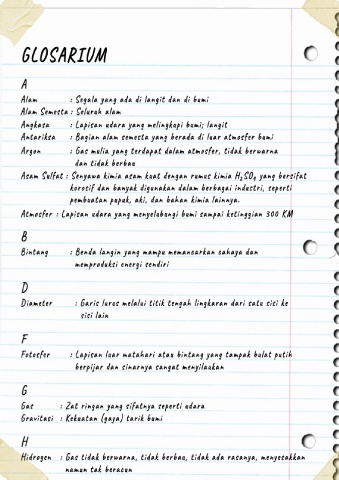 GLOSARIUM
A
Alam : Segala yang ada di langit dan di bumi
Alam Semesta : Seluruh alam
Angkasa : Lapisan udara yang melingkupi bumi; langit
Antariksa : Bagian alam semesta yang berada di luar atmosfer bumi
Argon : Gas mulia yang terdapat dalam atmosfer, tidak berwarna
dan tidak berbau
Asam Sulfat : Senyawa kimia asam kuat dengan rumus kimia H₂SO₄ yang bersifat
korosif dan banyak digunakan dalam berbagai industri, seperti
pembuatan pupuk, aki, dan bahan kimia lainnya.
Atmosfer : Lapisan udara yang menyelubungi bumi sampai ketinggian 300 KM
B
Bintang : Benda langin yang mampu memancarkan cahaya dan
memproduksi energi sendiri
D
Diameter : Garis lurus melalui titik tengah lingkaran dari satu sisi ke
sisi lain
F
Fotosfer : Lapisan luar matahari atau bintang yang tampak bulat putih
berpijar dan sinarnya sangat menyilaukan
G
Gas : Zat ringan yang sifatnya seperti udara
Gravitasi : Kekuatan (gaya) tarik bumi
H
Hidrogen : Gas tidak berwarna, tidak berbau, tidak ada rasanya, menyesakkan
namun tak beracun